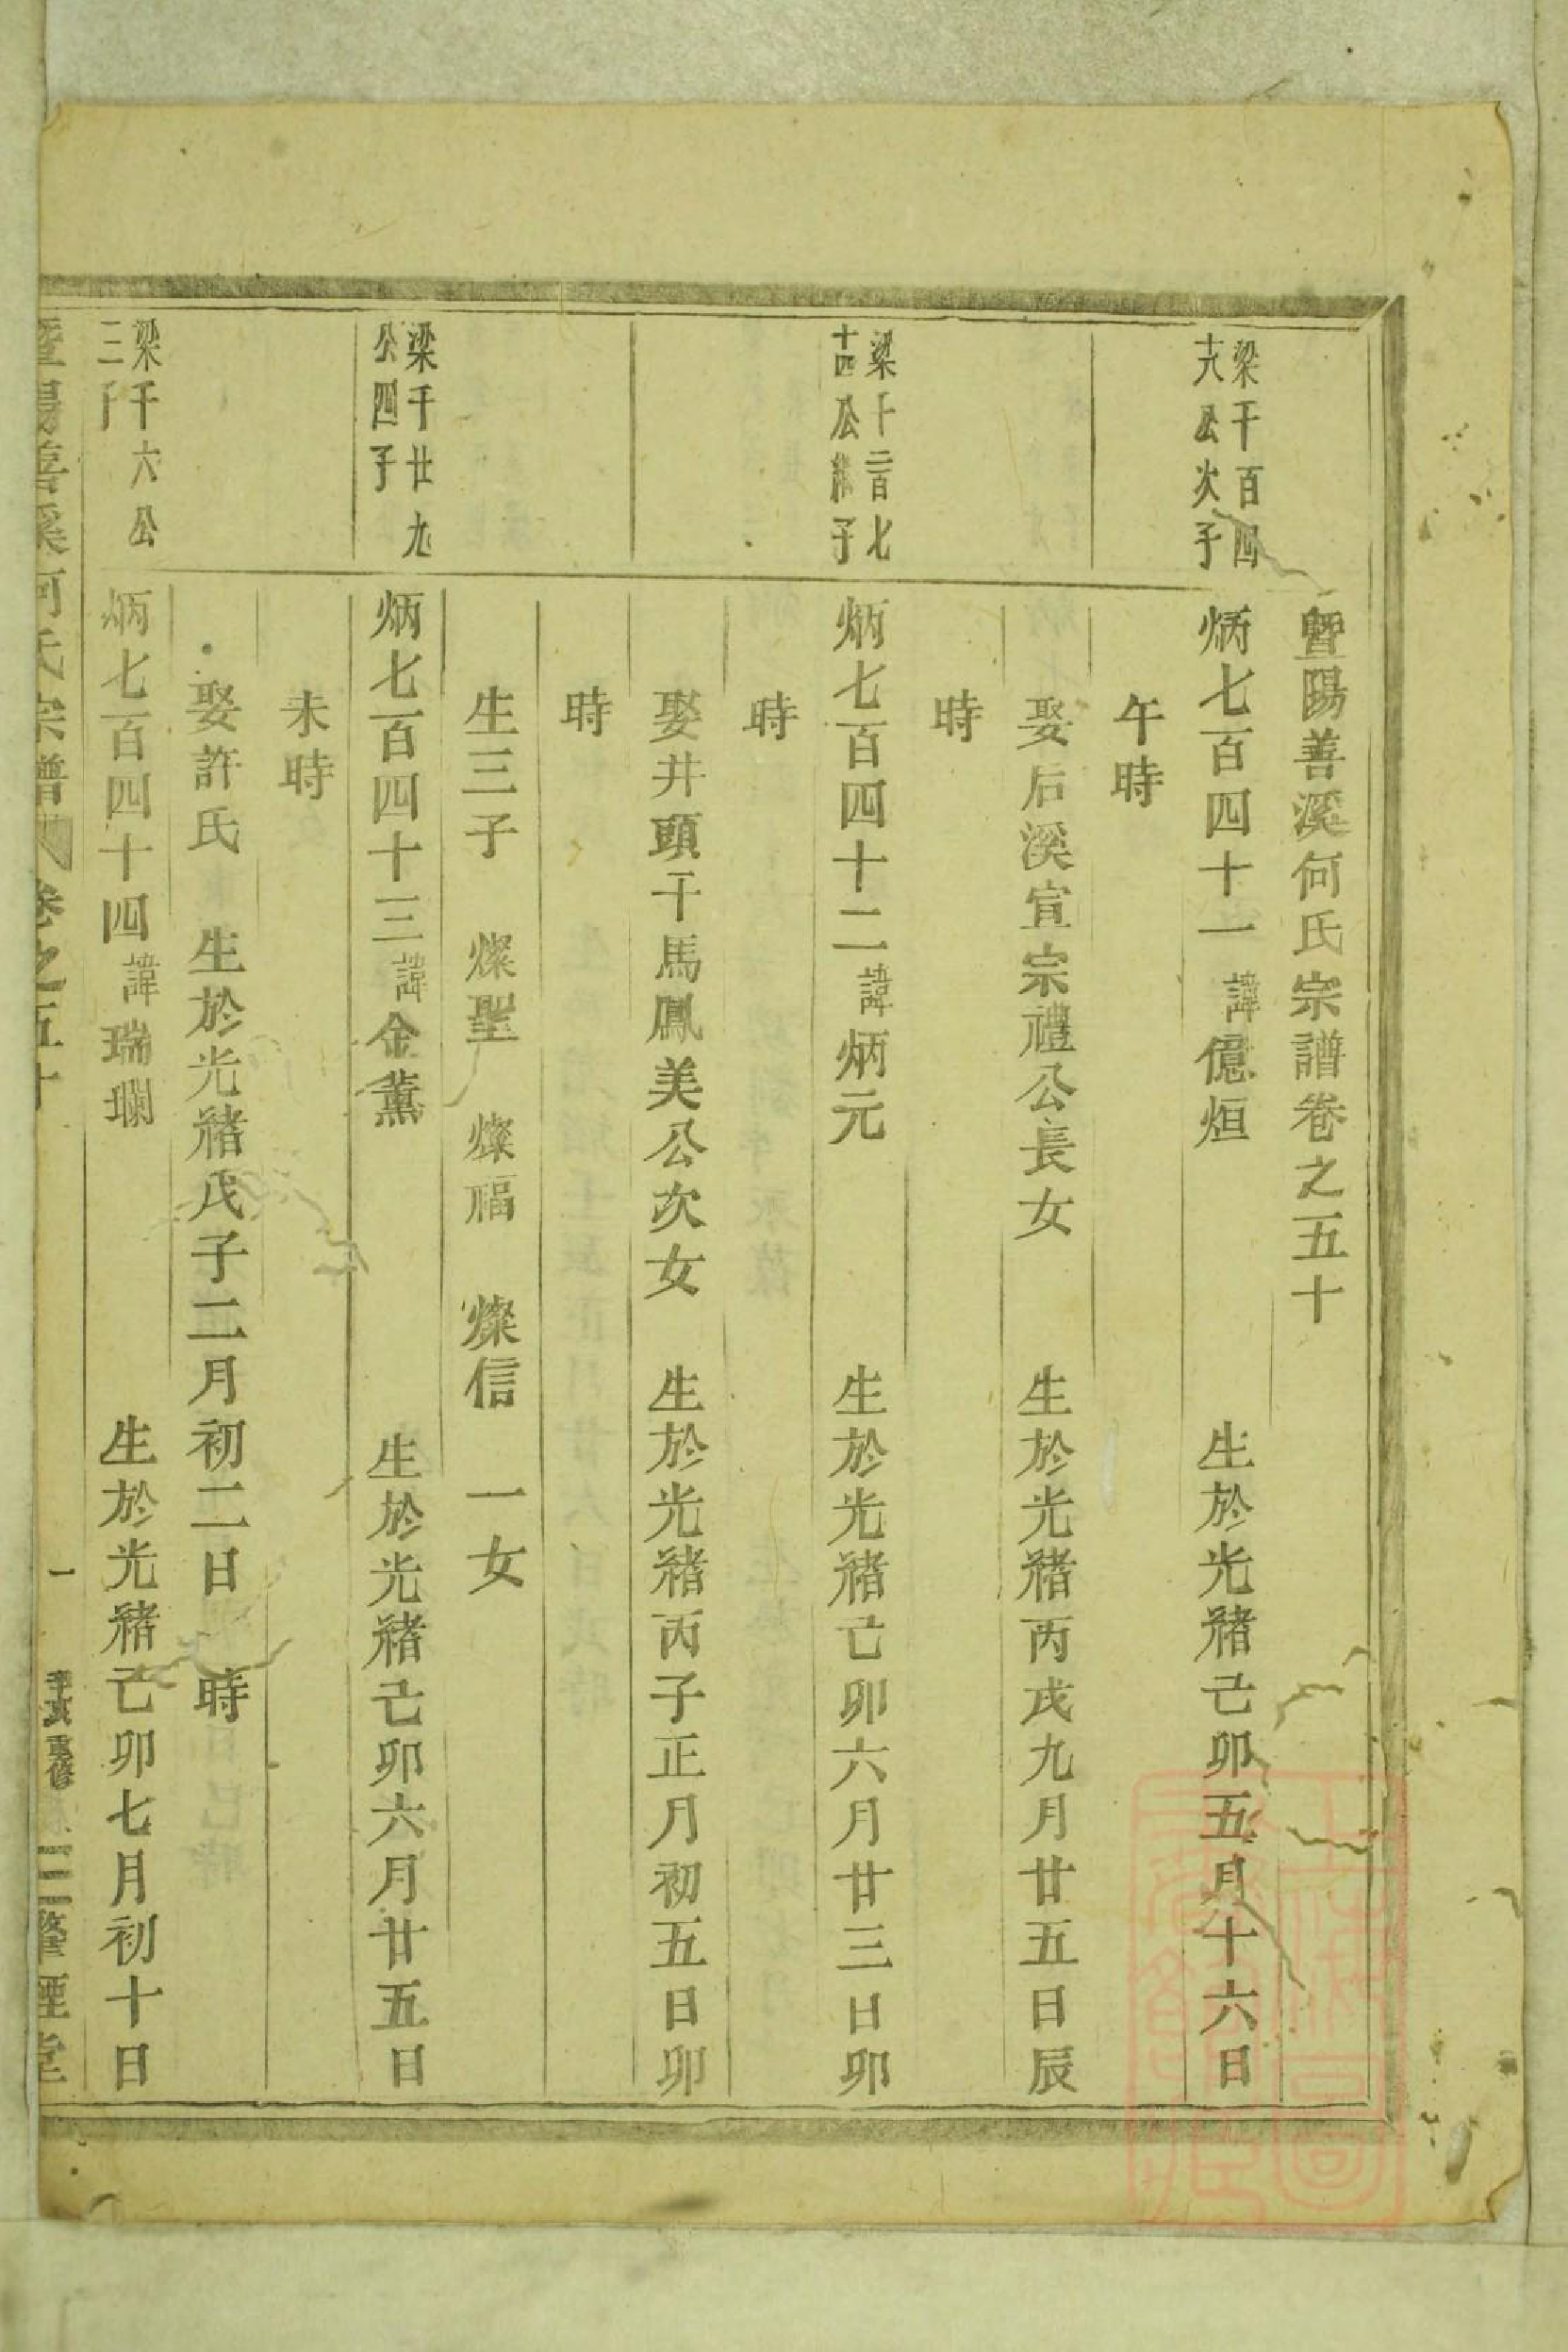 暨陽善溪何氏宗譜卷之五十
梁千百四
十八公次子
炳七百四十一諱億烜 生於光緒己卯五月十六日
午時
娶后溪宣宗禮公長女 生於光緒丙戌九月廿五日辰
時
梁千二百七
十四公繼子
炳七百四十二諱炳元 生於光緒己卯六月廿三日卯
時
娶井頭干馬鳳美公次女 生於光緒丙子正月初五日卯
時
生三子 燦聖 燦福 燦信 一女
梁千廿九
公四子
炳七百四十三諱金薰 生於光緒己卯六月廿五日
未時
娶許氏 生於光緒戊子二月初二日 時
梁千六公
二子
炳七百四十四諱瑞瓓 生於光緒己卯七月初十日
暨陽善溪何氏宗譜 卷之五十 一 辛亥重修 堂